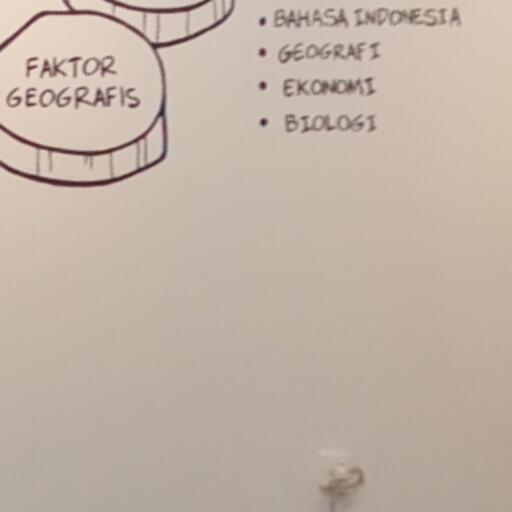 FAKTOR
GEOGRAFIS
• BAHASA INDONESIA
• GEOGRAFI
• EKONOMI
• BIOLOGI